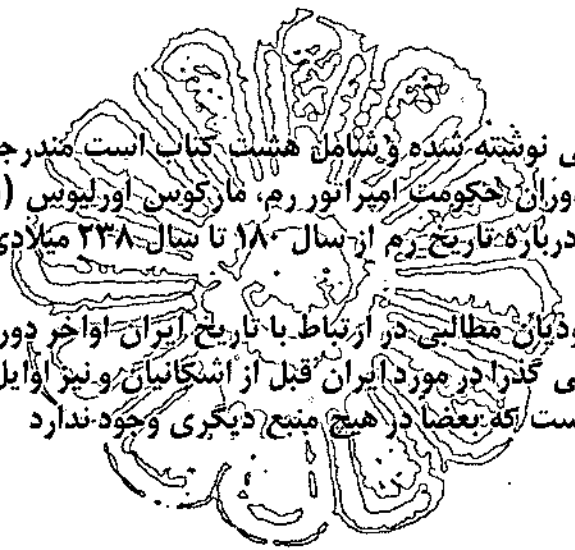 ی نوشته شده و شامل هشت کتاب است مندرج
وران حکومت امپراتور رم، مارکوس اورلیوس (
درباره تاریخ رم از سال ۱۸۰ تا سال ۲۳۸ میلادی
ودیان مطالبی در ارتباط با تاریخ ایران اواخر دور
ی گذرا در مورد ایران قبل از اشکانیان و نیز اوایل
ست که بعضا در هیچ منبع دیگری وجود ندارد